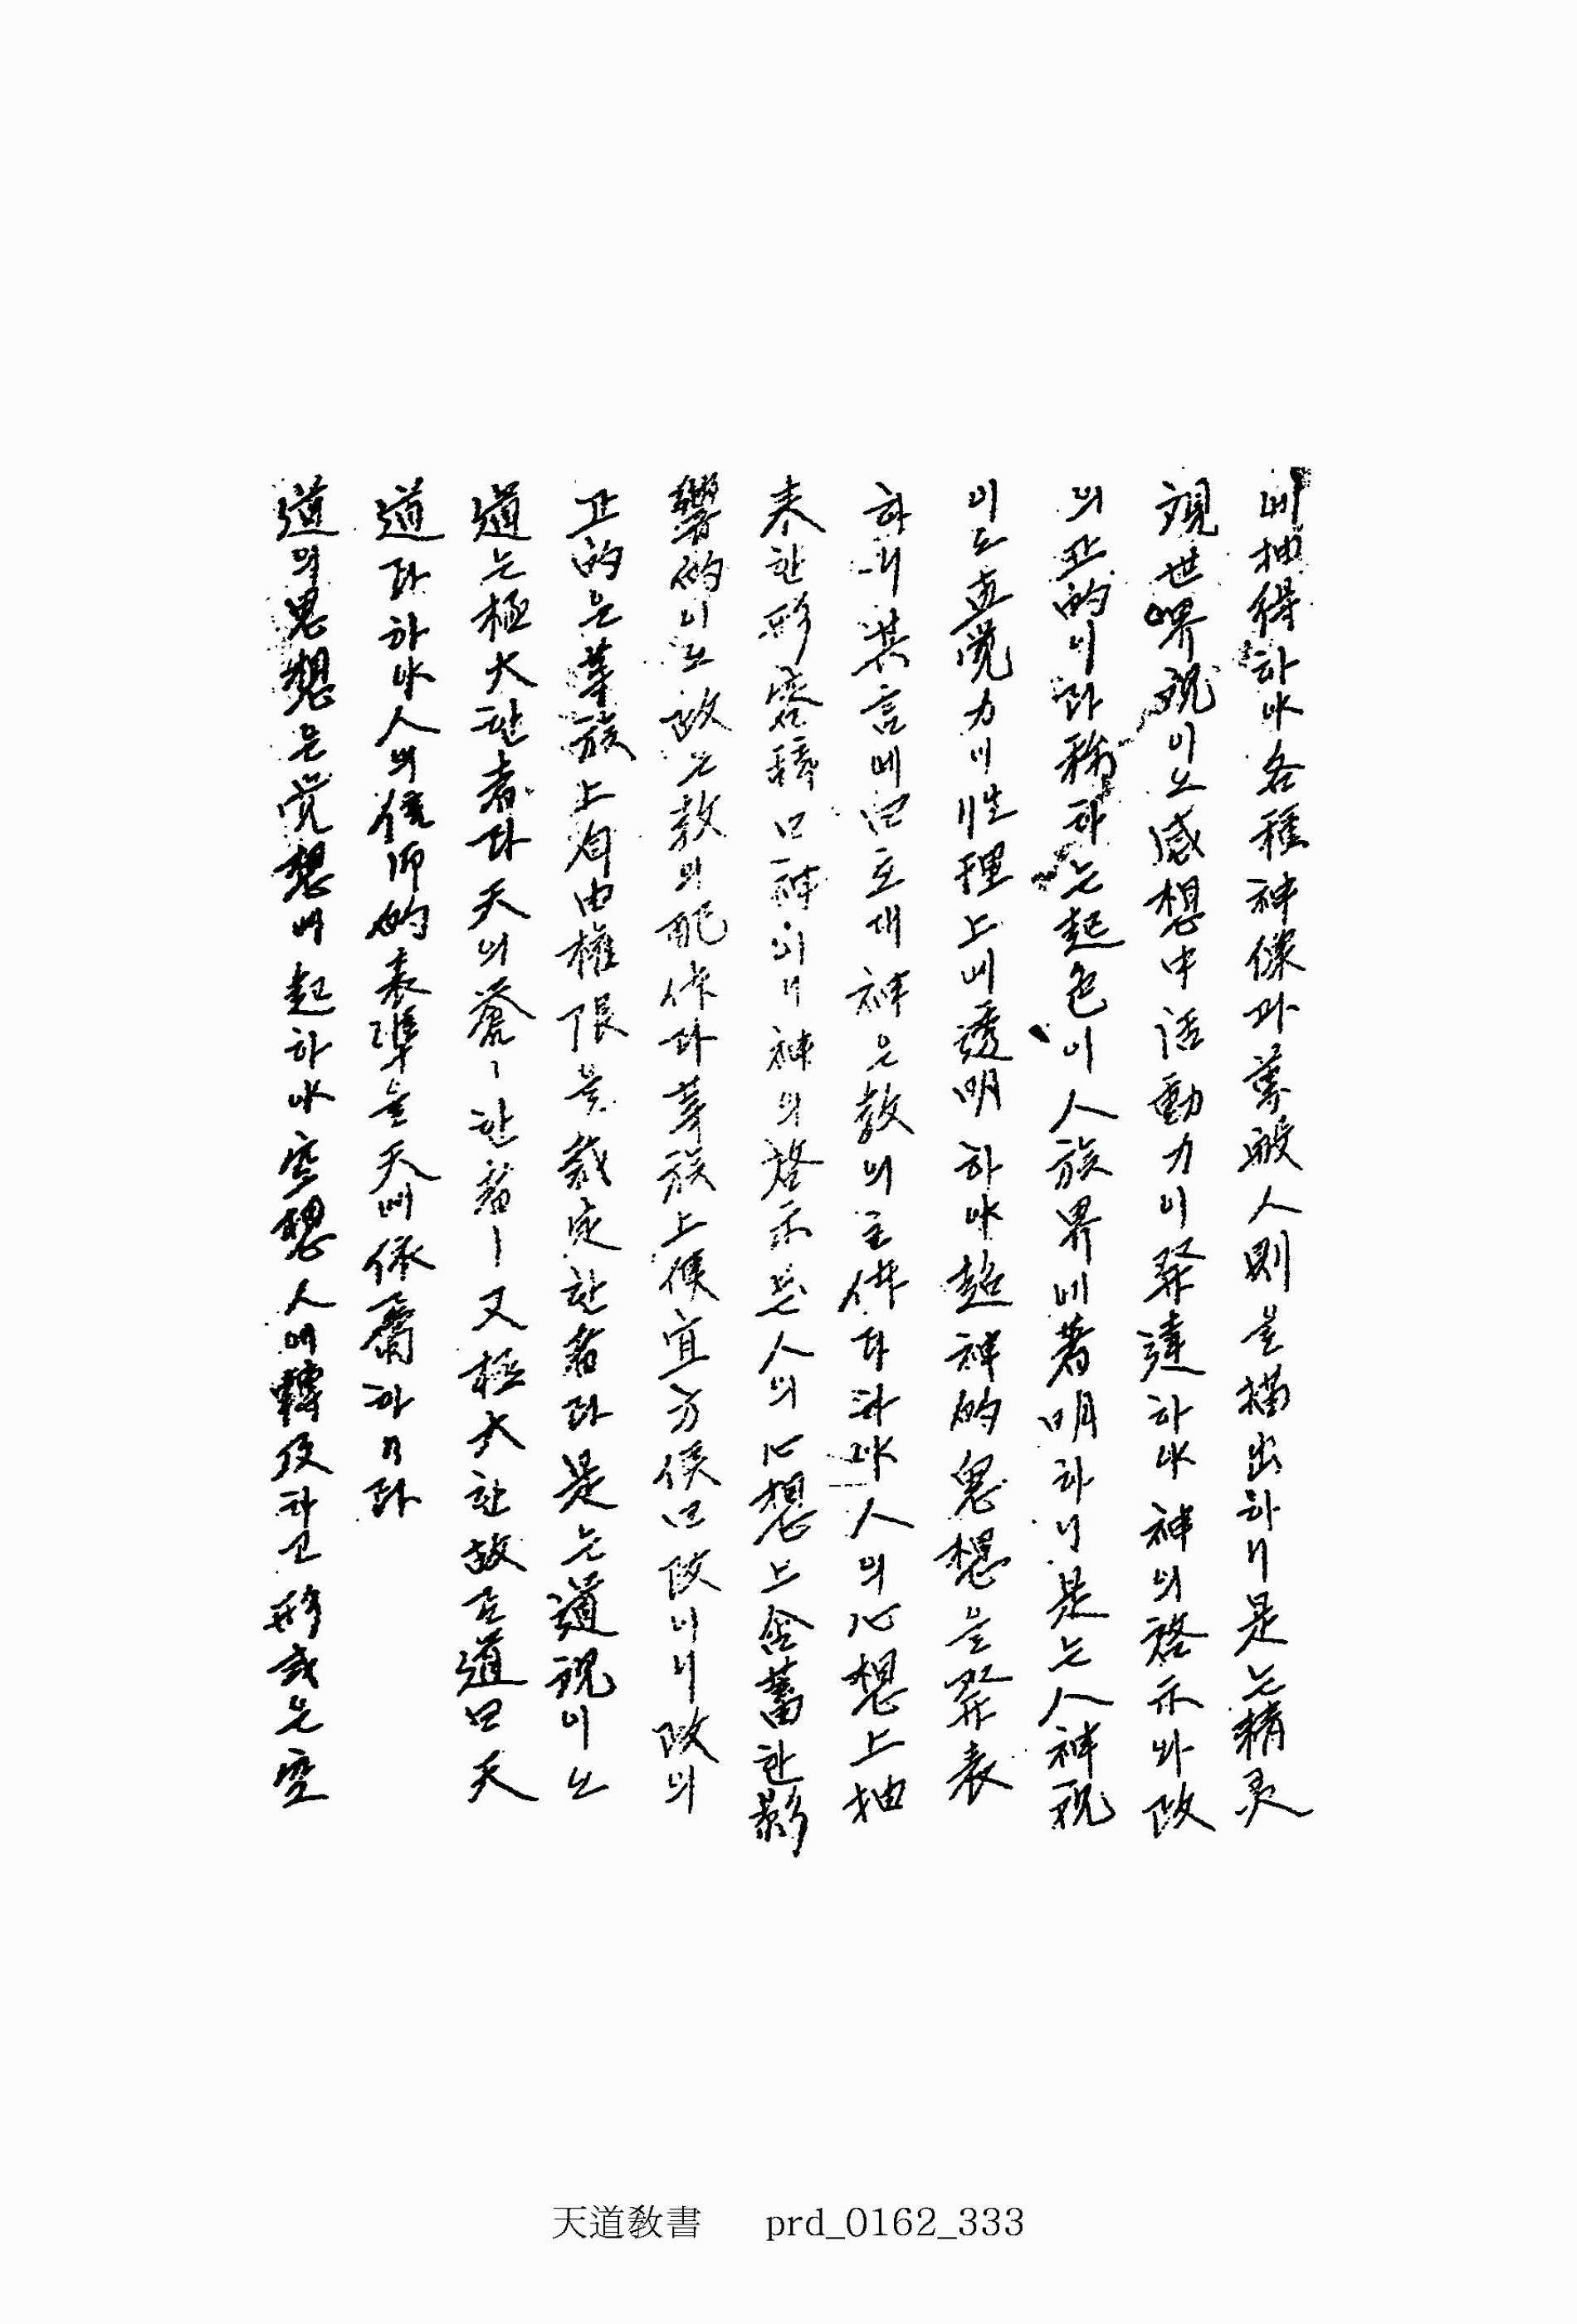 에抽得하야各種神像과萬般人則을描出하니是는精灵
現世界觀이오感想中活動力이發達하야神의啓示와政
의正的이라稱하는起色이人族界에著明하니是는人神視
이오直覺力이性理上에透明하야超神的思想을發表
하니其言에曰호대神은敎의主体라하야人의心想上抽
来한形容稱曰神이니神의啓示는人의心想上含蓄한影
響的이오政는敎의配作라羣族上便宜方侯曰政이니政의
正的은羣族上自由權限을裁定한者라是는道視이오
道는極大한者라天의蒼〻한者ㅣ又極大한故로道曰天
道라하야人의信仰的表準을天에依屬하니라
道의思想은覚想에起하야空想人에轉及하고形式은空
天道敎書 prd_0162_333